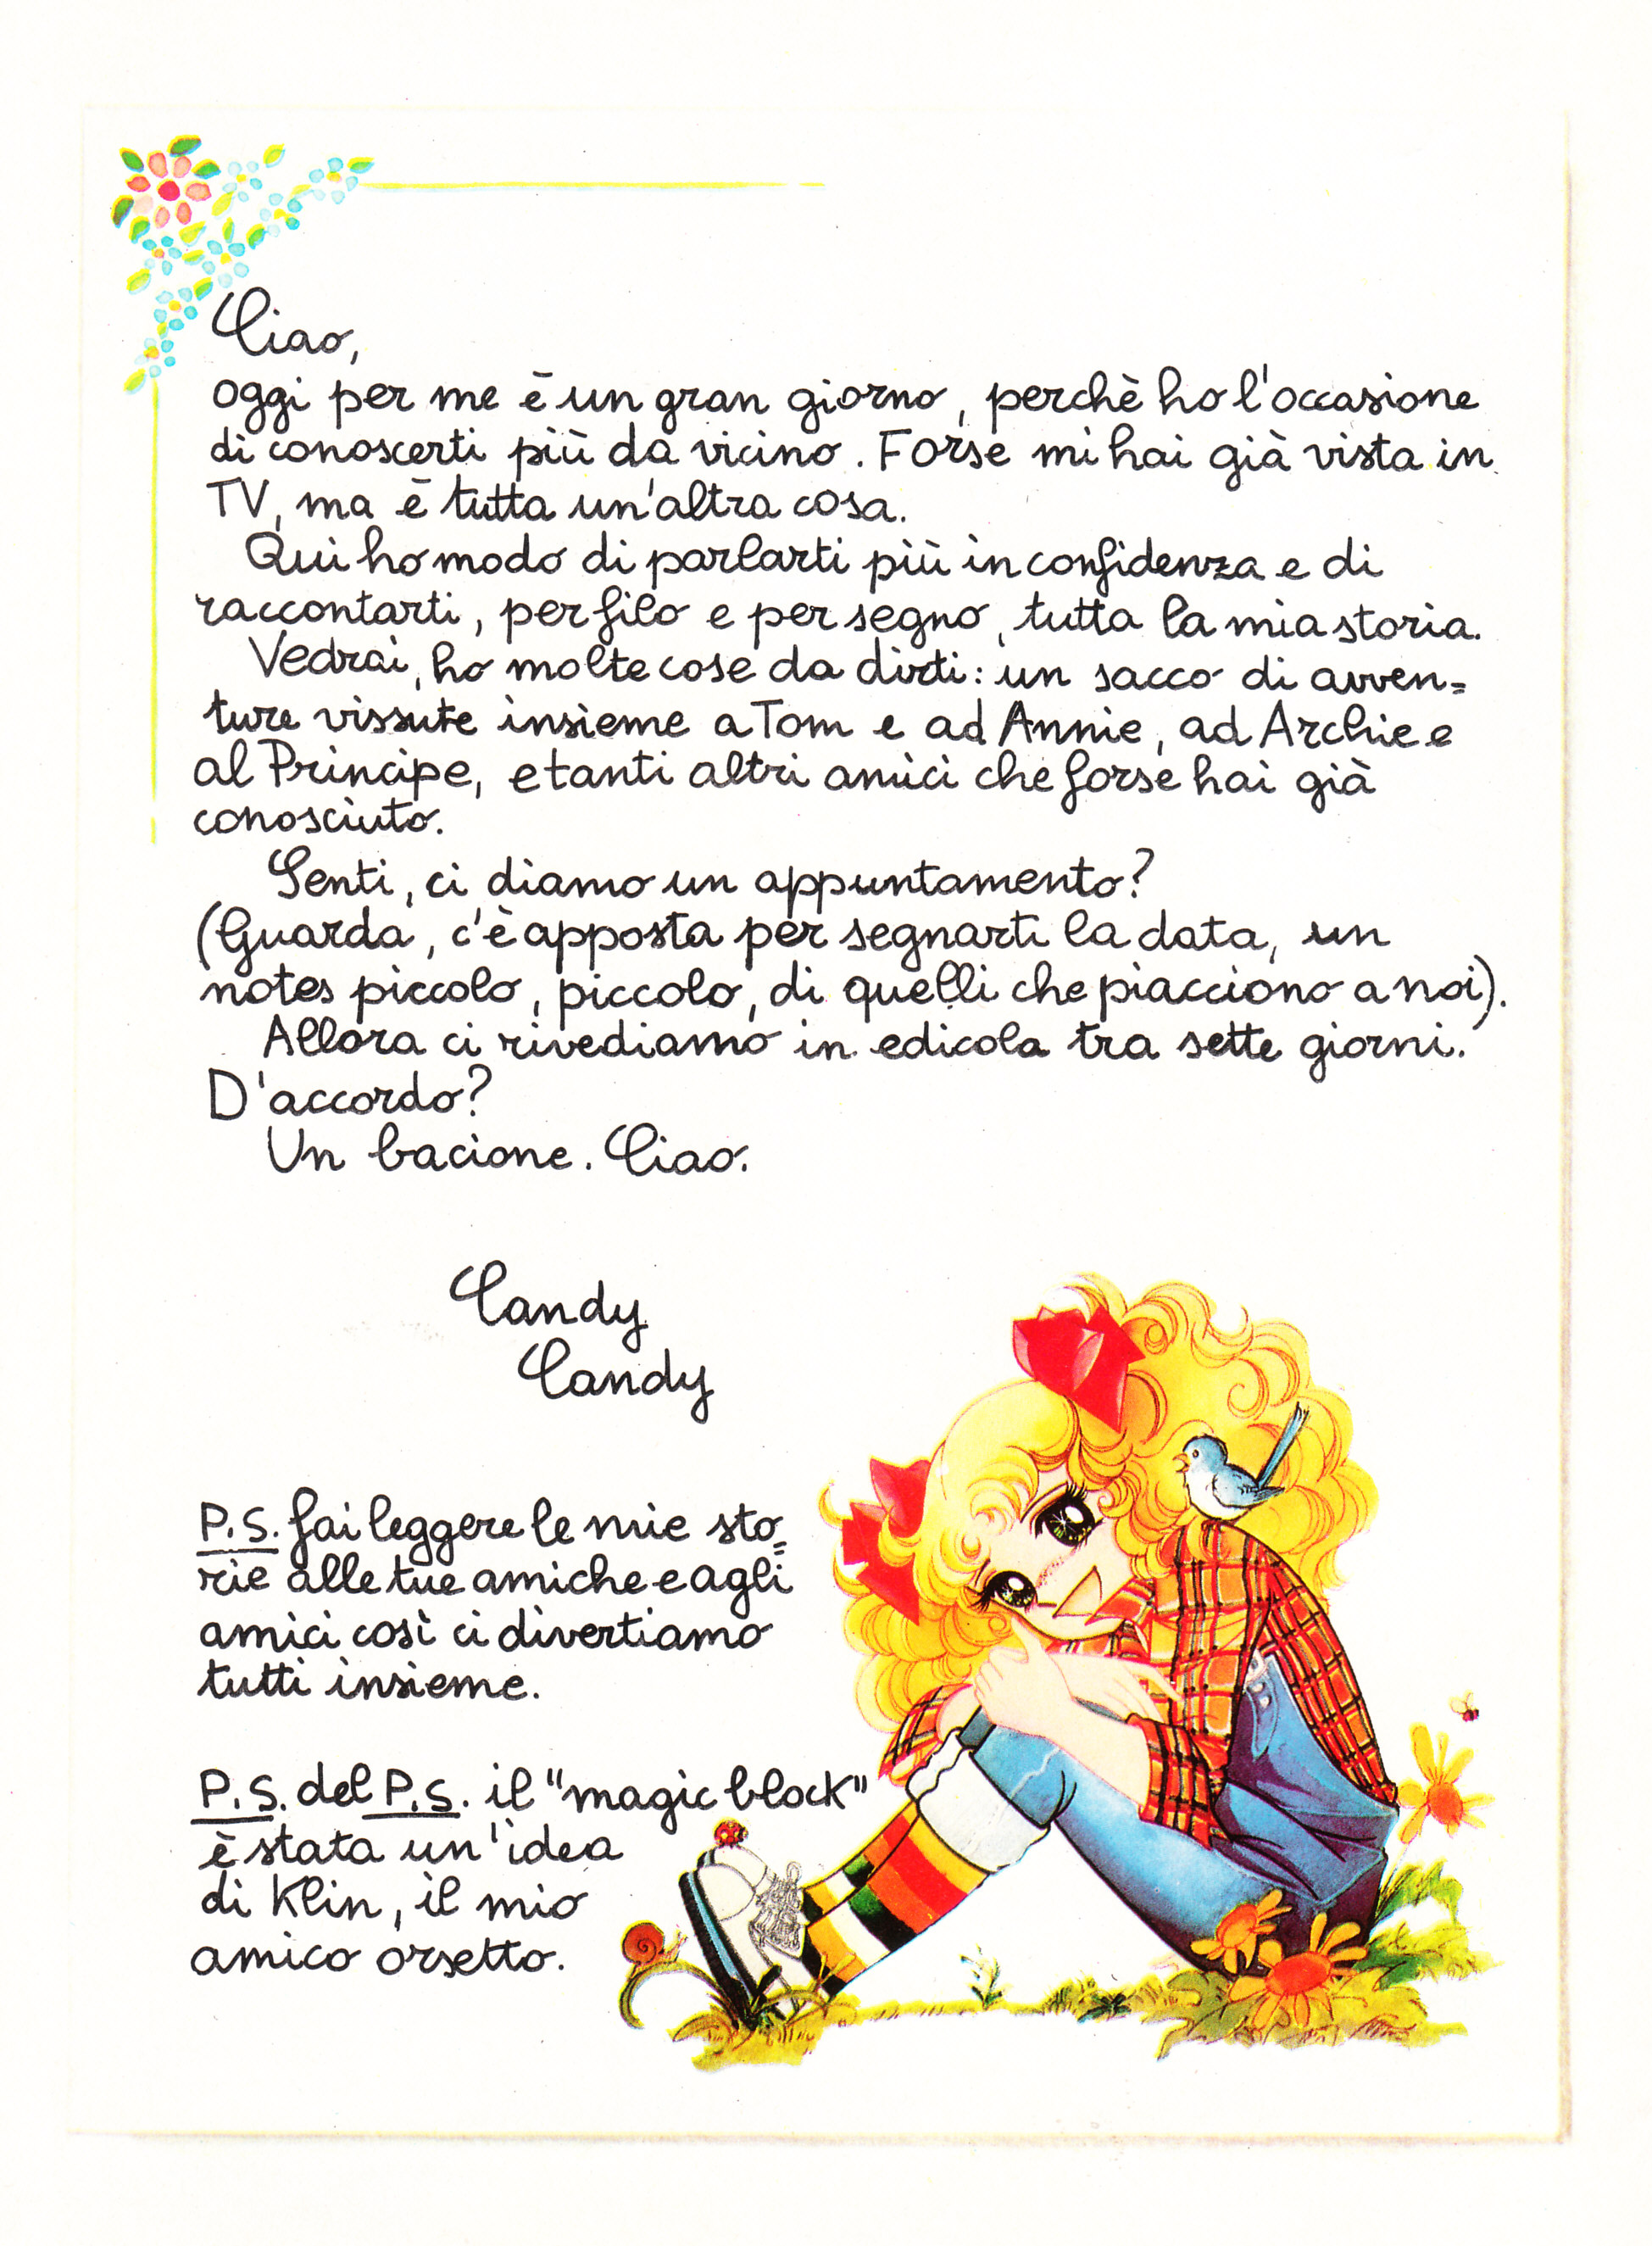 Ciao,
oggi per me è un gran giorno, perchè ho l'occasione
di conoscerti più da vicino. Forse mi hai già vista in
TV, ma è tutta un'altra cosa.
Qui ho modo di parlarti più in confidenza e di
raccontarti, per filo e per segno, tutta la mia storia.
Vedrai, ho molte cose da dirti: un sacco di avven=
ture vissute insieme a Tom e ad Annie, ad Archie e
al Principe, e tanti altri amici che forse hai già
conosciuto.
Senti, ci diamo un appuntamento?
(Guarda, c'è apposta per segnarti la data, un
notes piccolo, piccolo, di quelli che piacciono a noi).
Allora ci rivediamo in edicola tra sette giorni.
D'accordo?
Un bacione. Ciao.
Candy
Candy
P.S. fai leggere le mie sto=
rie alle tue amiche e agli
amici così ci divertiamo
tutti insieme.
P.S. del P.S. il "magic block"
è stata un'idea
di Klin, il mio
amico orsetto.